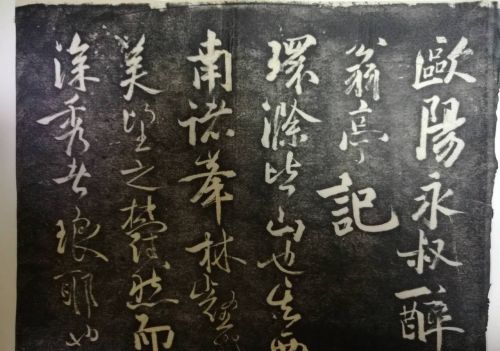 歐陽永叔醉
翁亭記
環滁皆山也其西
南諸峯林壑
美望之蔚然而
深秀者琅耶也